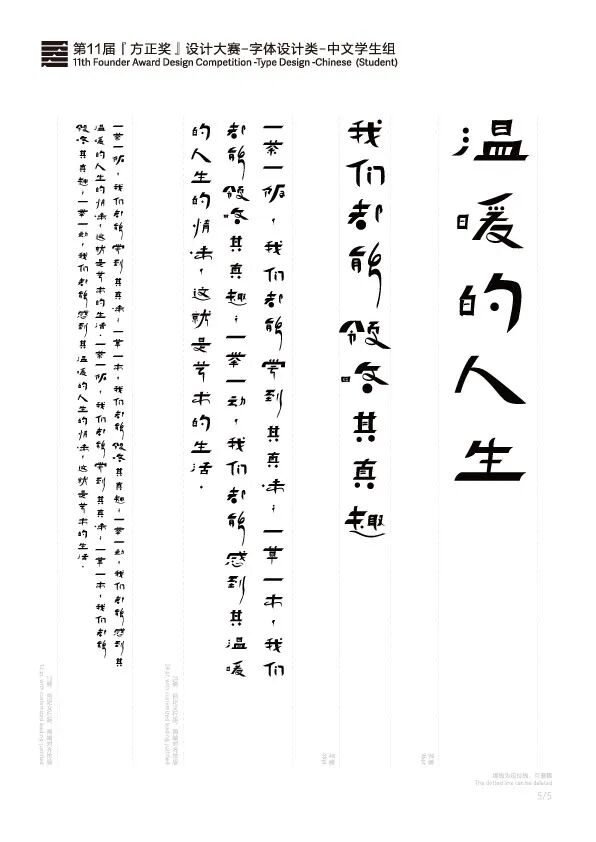 第11届『方正奖』设计大赛-字体设计类-中文学生组
11th Founder Award Design Competition -Type Design -Chinese (Student)
温暖的人生
我们都能领略其真趣
一茶一饭，我们都能尝到其真味，一草一木，我们
都能领略其真趣；一举一动，我们都能感到其温暖
的人生的情味，这就是艺术的生活．
一茶一饭，我们都能尝到其真味，一草一木，我们都能领略其真趣；一举一动，我们都能感到其
温暖的人生的情味，这就是艺术的生活．一茶一饭，我们都能尝到其真味，一草一木，我们都能
领略其真趣；一举一动，我们都能感到其温暖的人生的情味，这就是艺术的生活．
虚线为定位线，可删除
The dotted line can be deleted
5/5